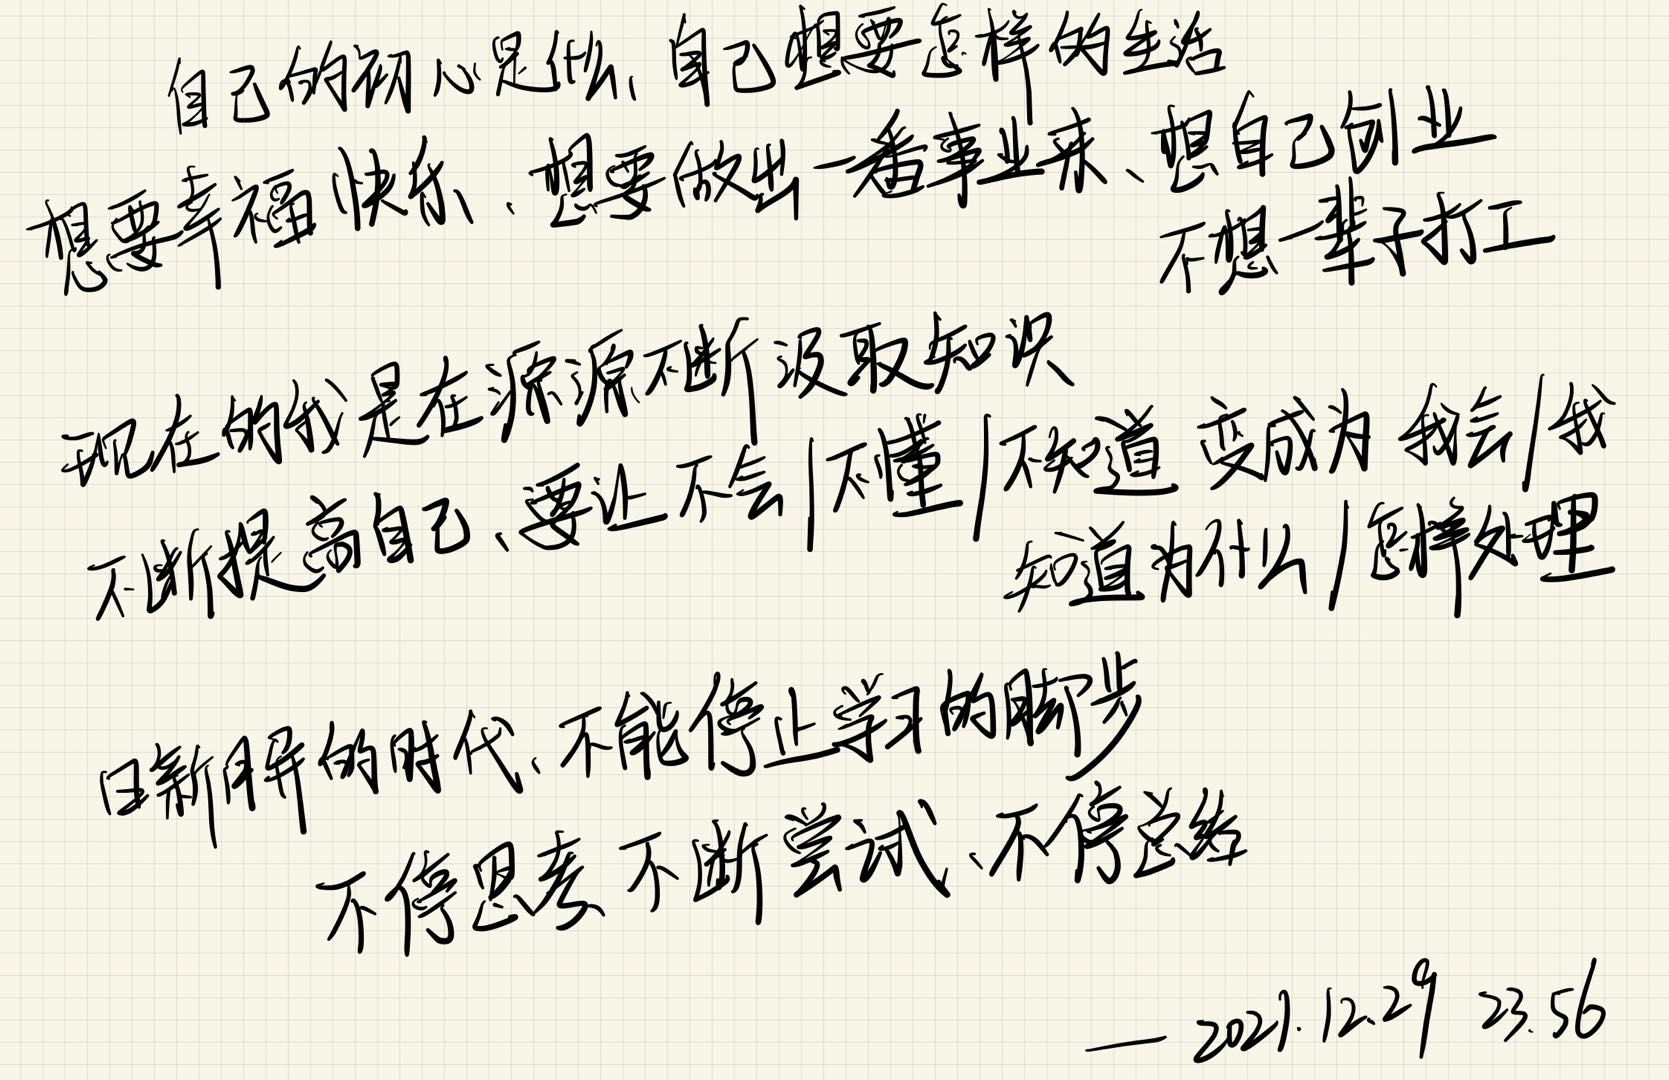 自己的初心是什么、自己想要怎样的生活
想要幸福快乐、想要做出一番事业来、想自己创业
不想一辈子打工
现在的我是在源源不断汲取知识
不断提高自己、要让不会/不懂/不知道 变成为 我会/我
知道为什么/怎样处理
日新月异的时代、不能停止学习的脚步
不停思考、不断尝试、不停总结
—— 2021.12.29 23.56